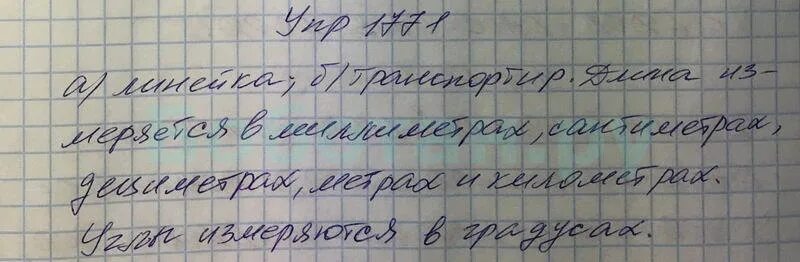 Упр 1771
а) линейка; б) транспортир. Длина из-
меряется в миллиметрах, сантиметрах,
дециметрах, метрах и километрах.
Углы измеряются в градусах.